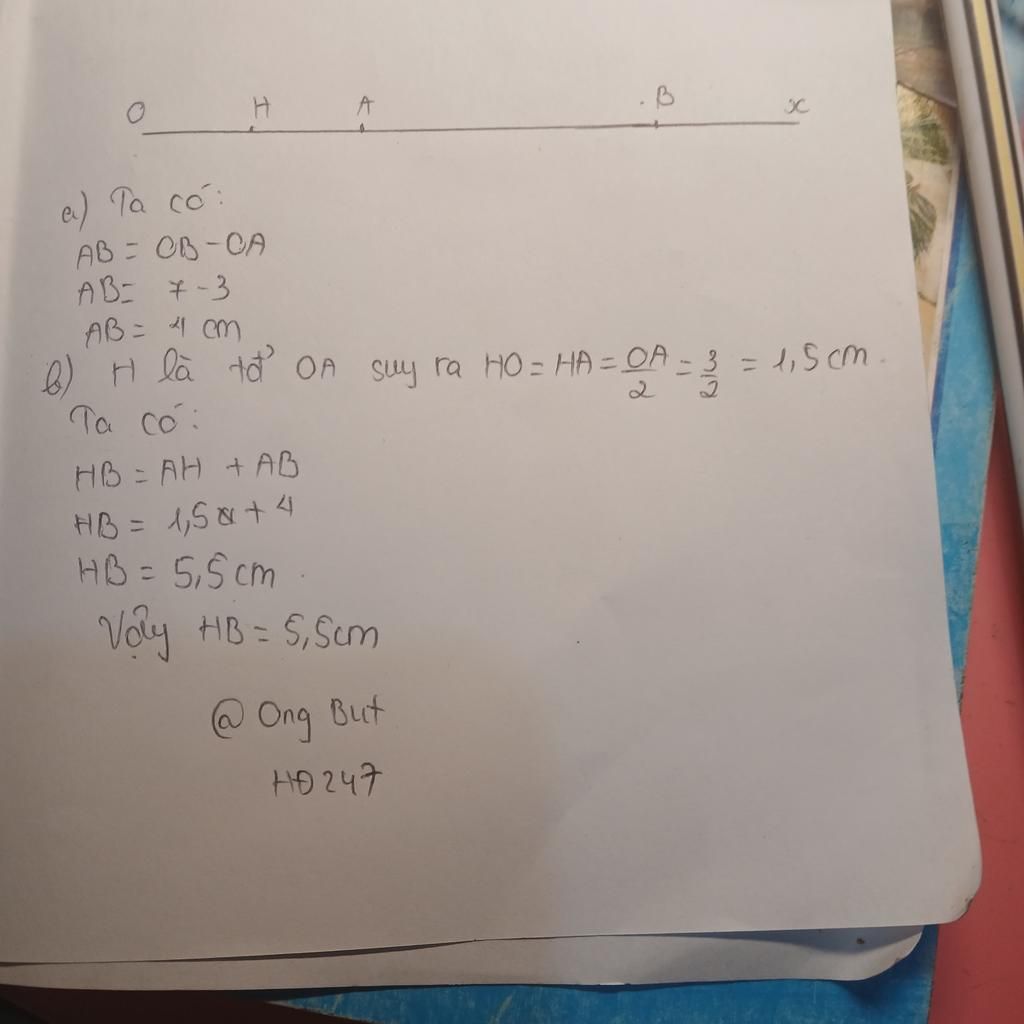 O H A .B x
a) Ta có:
AB = OB - OA
AB = 7 - 3
AB = 4 cm
b) H là tđ' OA suy ra HO = HA = OA/2 = 3/2 = 1,5 cm.
Ta có:
HB = AH + AB
HB = 1,5 + 4
HB = 5,5 cm.
Vậy HB = 5,5cm
@ Ong But
HĐ247